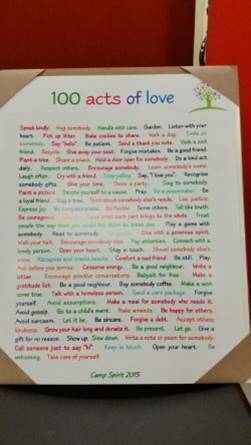 100 acts of love
Speak kindly. Hug somebody. Handle with care. Garden. Listen with your
heart. Pick up litter. Bake cookies to share. Walk a dog. Smile at
somebody. Say "hello". Be patient. Send a thank you note. Help a sick
friend. Recycle. Give away your seat. Forgive mistakes. Be a good friend.
Plant a tree. Share a snack. Hold a door open for somebody. Do a kind act
daily. Respect others. Encourage somebody. Learn somebody's name.
Laugh often. Cry with a friend. Stop yelling. Say, "I love you". Recognize
somebody gifts. Give your time. Throw a party. Sing to somebody.
Paint a picture. Devote yourself to a cause. Pray. Be a peacemaker. Be
a loyal friend. Hug a tree. Think about somebody else's needs. Live justice.
Express joy. Be compassionate. Be flexible. Serve others. Tell the truth.
Be courageous. what each part brings to the whole. Treat
people the way that you would like them to treat you. Play a game with
somebody. Read to somebody. Give with a generous spirit.
Walk your talk. Encourage somebody else. Pay attention. Connect with a
lonely person. Open your heart. Stay in touch. Shovel somebody else's
snow. Recognize and create beauty. Comfort a sad friend. Be still. Play.
Ask before you borrow. Conserve energy. Be a good neighbor. Write a
letter. Encourage positive conversations. Babysit for free. Make a
gratitude list. Be a good neighbor. Buy somebody coffee. Make a wish
come true. Talk with a homeless person. Send a care package. Forgive
yourself. Avoid assumptions. Make a meal for somebody who needs it.
Avoid gossip. Go to a child's event. Make amends. Be happy for others.
Avoid sarcasm. Let it be. Be sincere. Forgive a debt. Accept others
kindness. Grow your hair long and donate it. Be present. Let go. Give a
gift for no reason. Show up. Slow down. Write a note or poem for somebody.
Call someone just to say "hi". Keep in touch. Open your heart. Be
welcoming. Take care of yourself.
Camp Spirit 2015